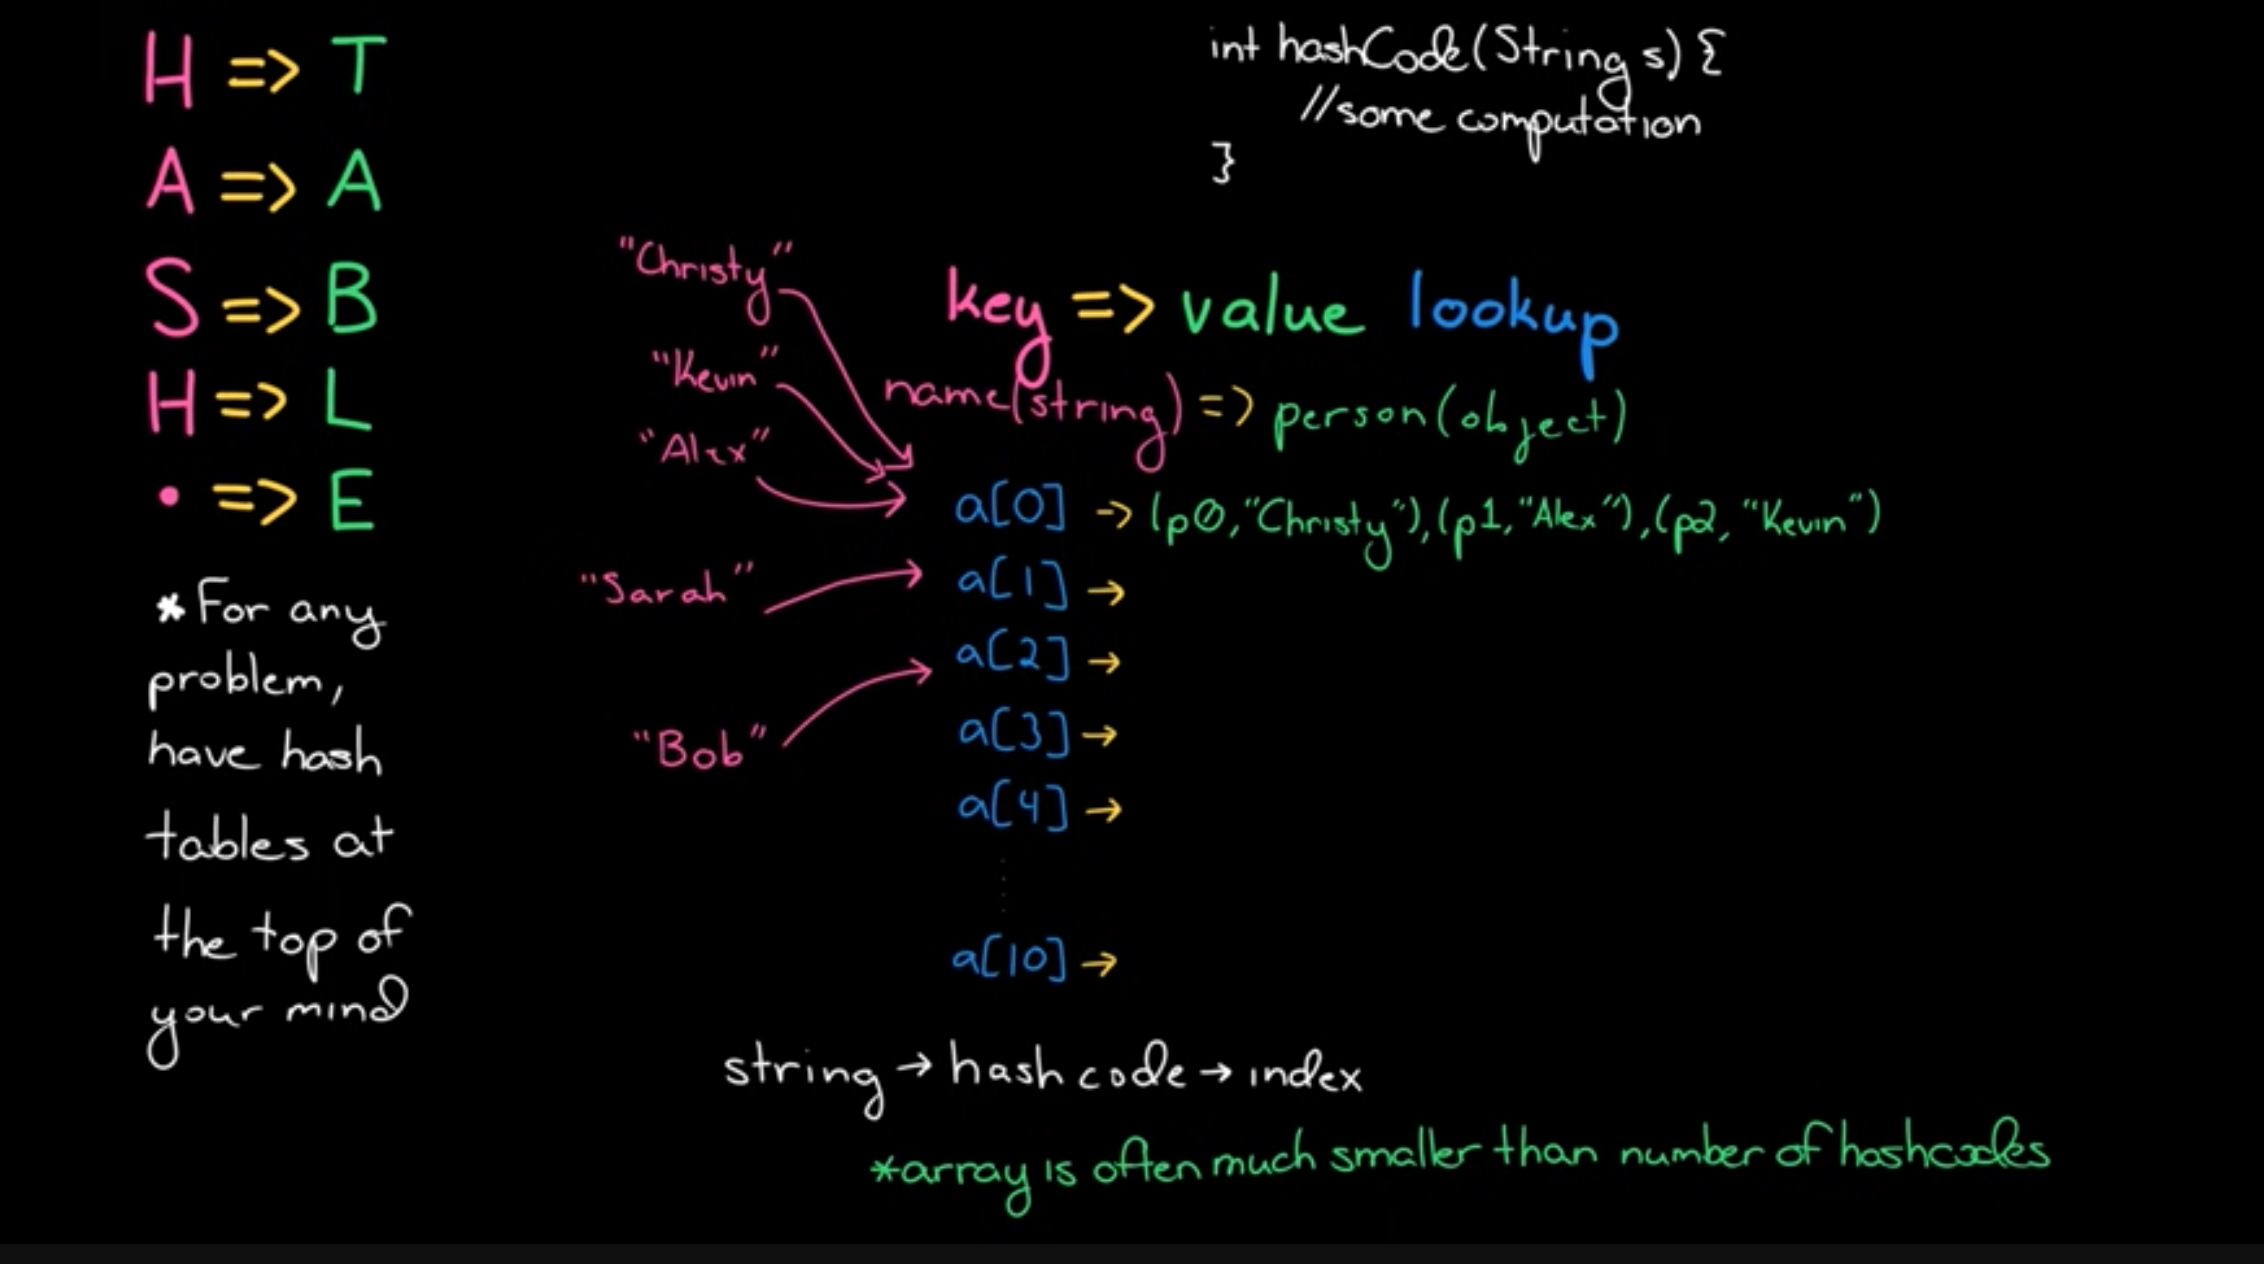 H => T
A => A
S => B
H => L
• => E
*For any
problem,
have hash
tables at
the top of
your mind
int hashCode(String s) {
//some computation
}
key => value lookup
name(string) => person(object)
"Christy"
"Kevin"
"Alex"
"Sarah"
"Bob"
a[0] -> (p0,"Christy"),(p1,"Alex"),(p2, "Kevin")
a[1] →
a[2] →
a[3] →
a[4] →
a[10] →
string → hash code → index
*array is often much smaller than number of hashcodes